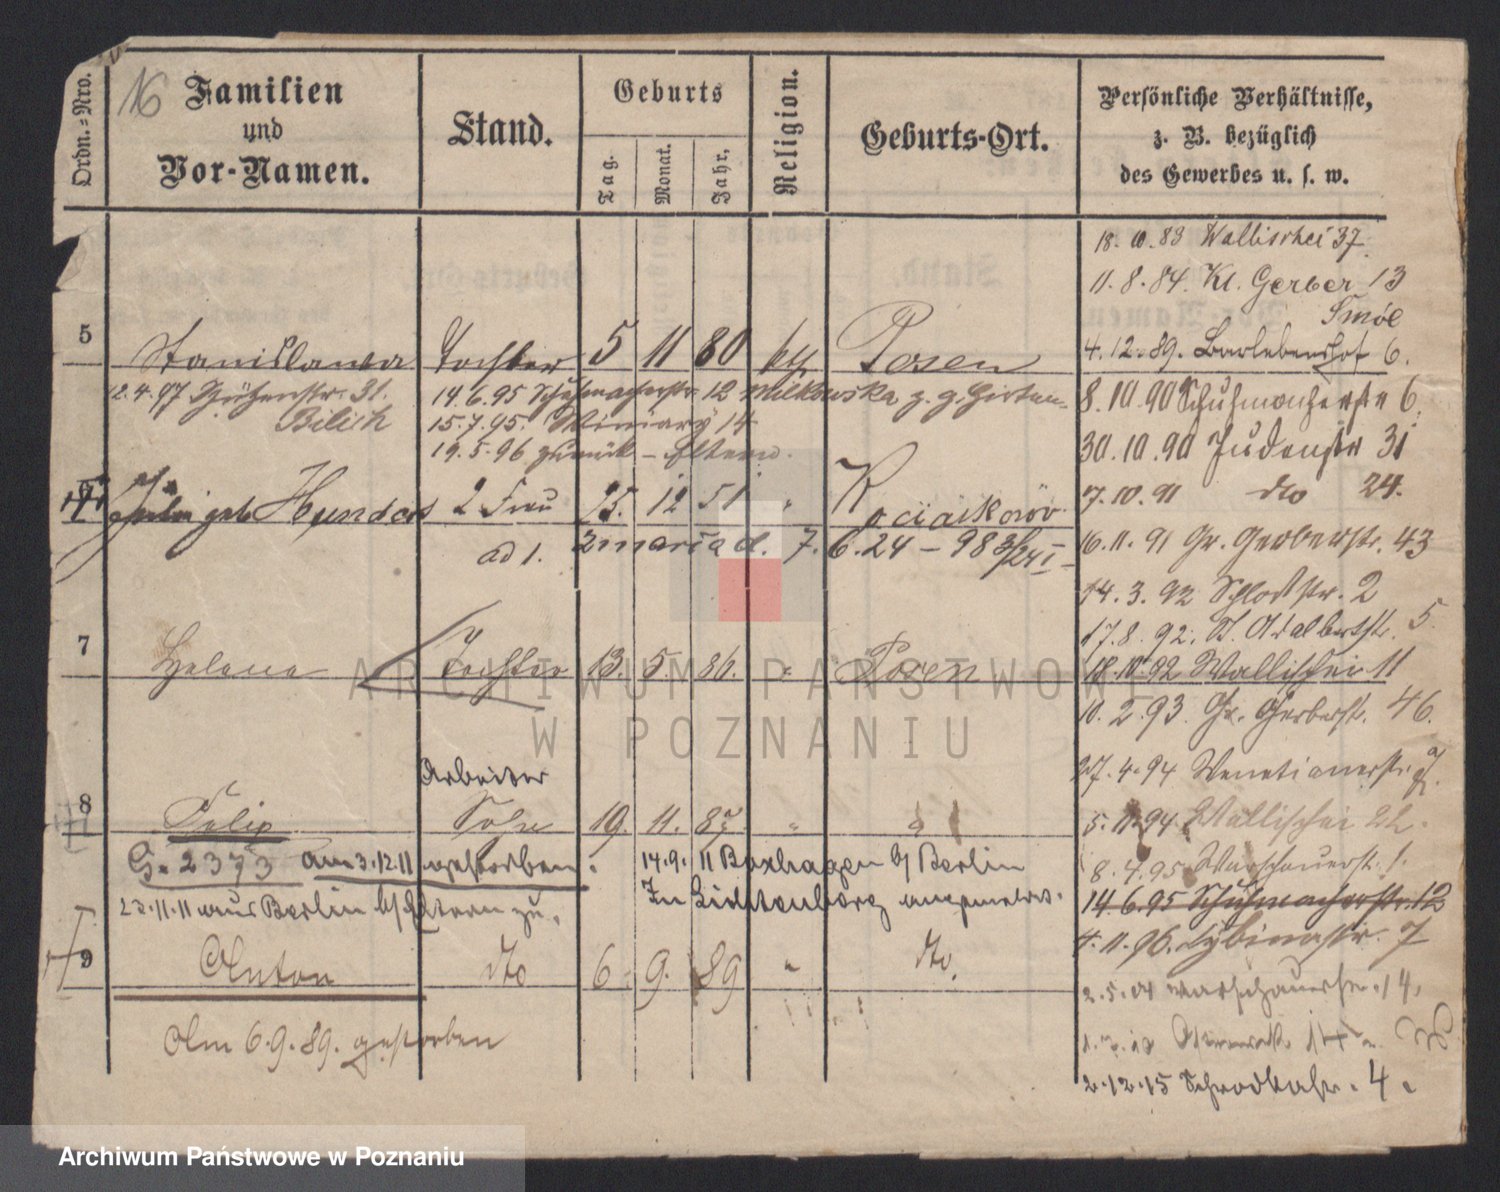 16
Ordn.-Nro.
Familien
und
Vor-Namen.
Stand.
Geburts
Tag.
Monat.
Jahr,
Religion.
Geburts-Ort.
Persönliche Verhältnisse,
z. B. bezüglich
des Gewerbes u. s. w.
18.10.83 Wallischei 37.
11.8.84. Kl. Gerber 13
4.12.89. Bartebenshof 6.
5 Stanislawa Tochter 5 11 80 kth. Posen
12.4.97 Schützenstr. 31.
14.6.95 Schuhmacherstr. 12 Milkowska
15.7.95. Winiary 14
19.5.96 zurück - Eltern.
8.10.90 Schuhmacherstr 6.
30.10.90 Judenstr 31
7.10.91 dto 24.
geb. 2 Frau 25. 12 51 "
ad 1. 7.6.24 - 98
16.11.91 Gr. Gerberstr. 43
14.3.92 Schloßstr. 2
17.8.92. St. Adalbertstr. 5
18.10.92 Wallischei 11
7 Helena Tochter 13. 5. 86. " Posen
10.2.93. Gr. Gerberstr. 46.
27.4.94 Venetianerstr.
Arbeiter
8 Felix Sohn 19. 11. 87 "
5.11.94 Wallischei 22.
G. 2373 am 3.12.11 gestorben. 14.9.11 Boxhagen b/ Berlin
8.4.95 Warschauerstr. 1.
23.11.11 aus Berlin b/ Eltern zu. In Lichtenberg
14.6.95 Schuhmacherstr. 12
4.11.96. Sybinastr. 7
9 Anton dto 6. 9. 89 " dto.
2.5.01 Warschauerstr. 14.
Am 6.9.89. gestorben
2.12.15 Schrodkastr. 4.
ARCHIWUM PAŃSTWOWE
W POZNANIU
Archiwum Państwowe w Poznaniu